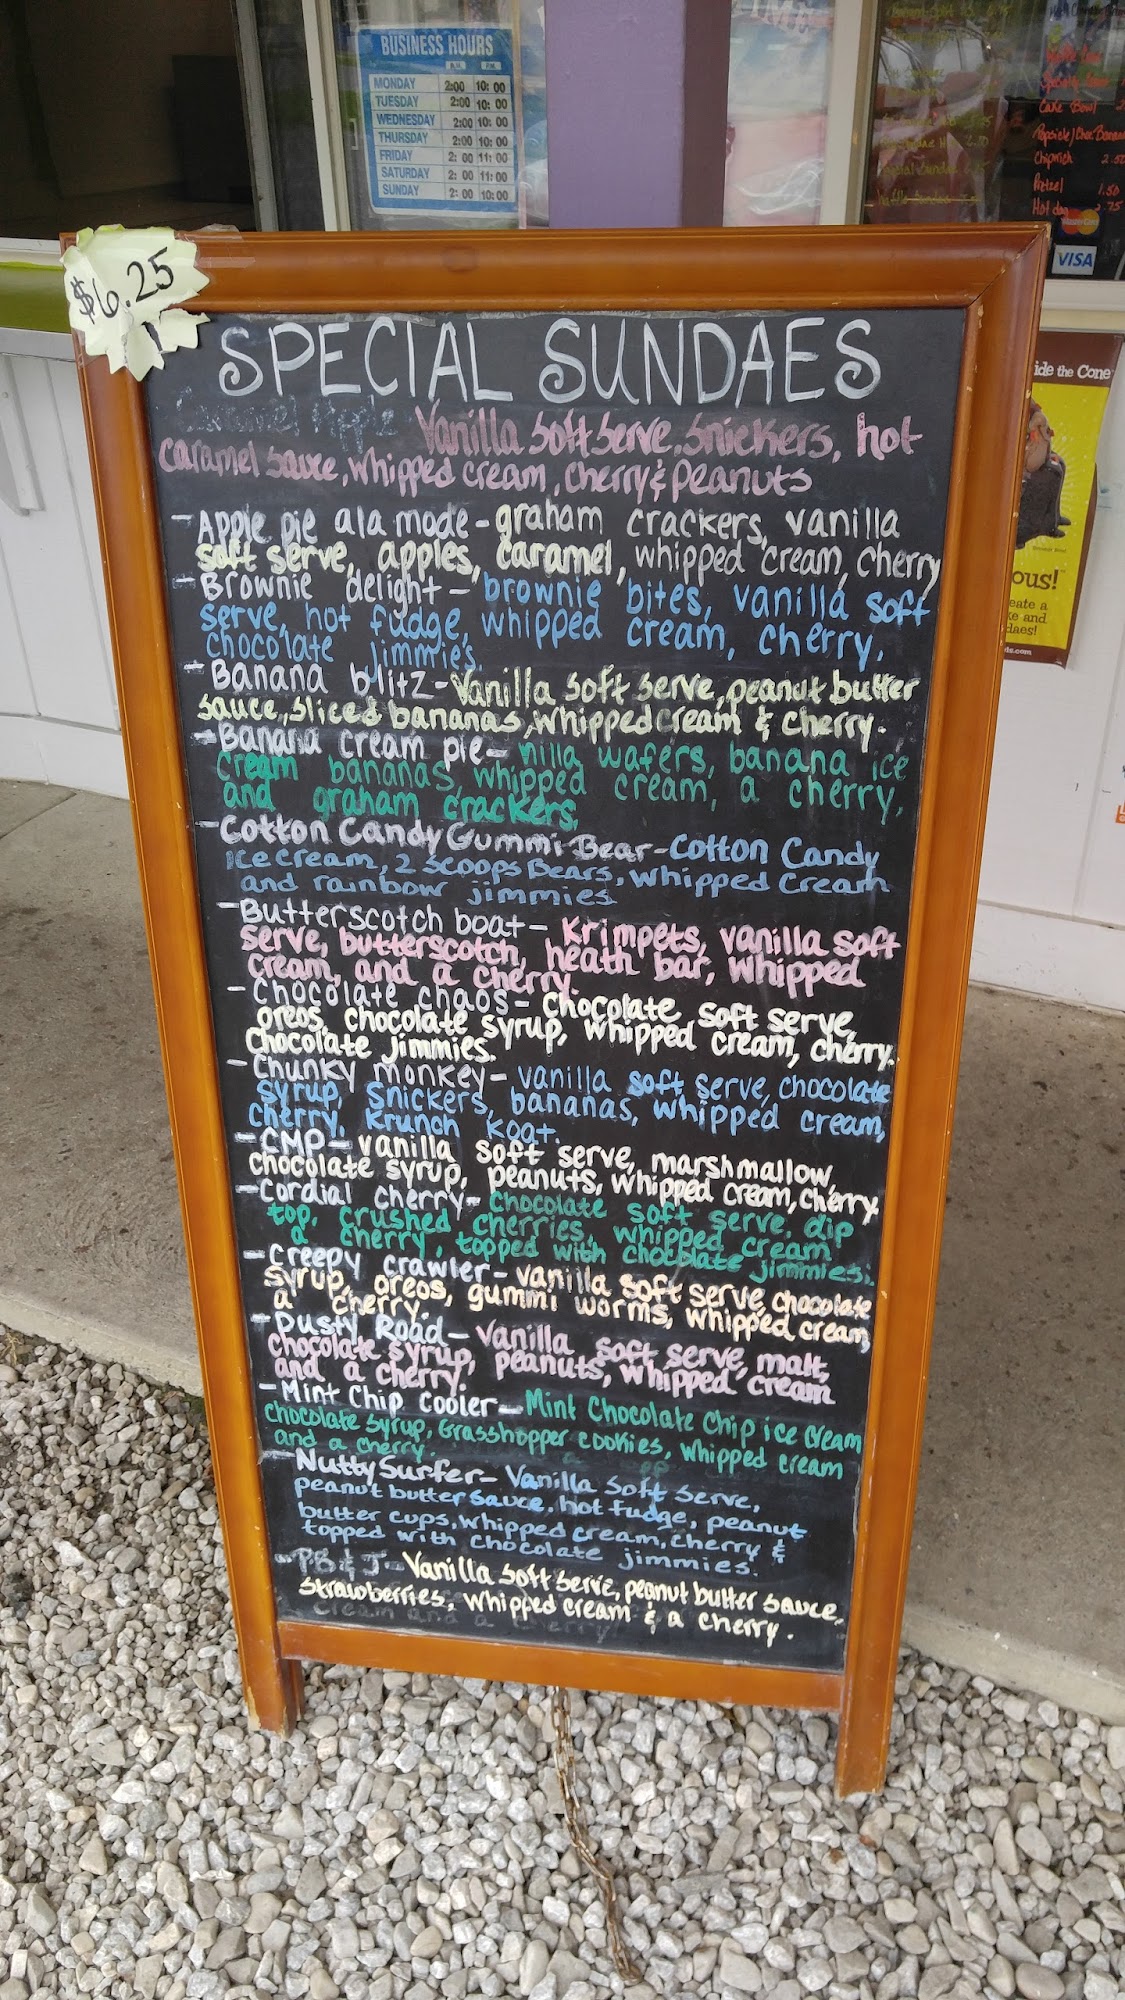 BUSINESS HOURS
A.M. P.M.
MONDAY 2:00 10:00
TUESDAY 2:00 10:00
WEDNESDAY 2:00 10:00
THURSDAY 2:00 10:00
FRIDAY 2:00 11:00
SATURDAY 2:00 11:00
SUNDAY 2:00 10:00
Cake Bowl
Popsicle/Choc Banana
Chipwich 2.50
Pretzel 1.50
Hot dog 2.75
MasterCard
VISA
$6.25
SPECIAL SUNDAES
Caramel Apple Vanilla Soft Serve, Snickers, hot
caramel sauce, whipped cream, cherry & Peanuts
-Apple pie ala mode - graham crackers, vanilla
soft serve, apples, caramel, whipped cream, cherry
-Brownie delight - brownie bites, vanilla soft
serve, hot fudge, whipped cream, cherry,
chocolate jimmie's.
-Banana blitz - Vanilla Soft Serve, peanut butter
sauce, sliced bananas, whipped cream & cherry.
-Banana cream pie - nilla wafers, banana ice
cream bananas, whipped cream, a cherry,
and graham crackers.
-Cotton Candy Gummi Bear - Cotton Candy
Ice cream, 2 scoops Bears, Whipped Cream
and rainbow jimmies
-Butterscotch boat - Krimpets, vanilla soft
serve, butterscotch, heath bar, whipped
cream, and a cherry.
-Chocolate chaos - chocolate soft serve,
oreos, chocolate syrup, whipped cream, cherry.
chocolate jimmies.
-Chunky monkey - vanilla soft serve, chocolate
syrup, Snickers, bananas, whipped cream,
cherry, krunch koat.
-CMP - vanilla soft serve, marshmallow,
chocolate syrup, peanuts, whipped cream, cherry.
-Cordial cherry - chocolate soft serve, dip
top, crushed cherries, whipped cream
a cherry, topped with chocolate jimmies.
-Creepy crawler - vanilla soft serve, chocolate
syrup, oreos, gummi worms, whipped cream,
a cherry.
-Dusty Road - vanilla soft serve, malt,
chocolate syrup, peanuts, whipped cream
and a cherry
-Mint Chip Cooler - Mint Chocolate Chip ice Cream
chocolate syrup, Grasshopper cookies, whipped cream
and a cherry.
-Nutty Surfer - Vanilla Soft Serve,
peanut butter sauce, hot fudge, peanut
butter cups, whipped cream, cherry &
topped with chocolate jimmies.
-PB & J - Vanilla Soft Serve, peanut butter sauce,
strawberries, whipped cream & a cherry.
cream and a cherry
ide the Cone
ous!
eate a
ke and
daes!